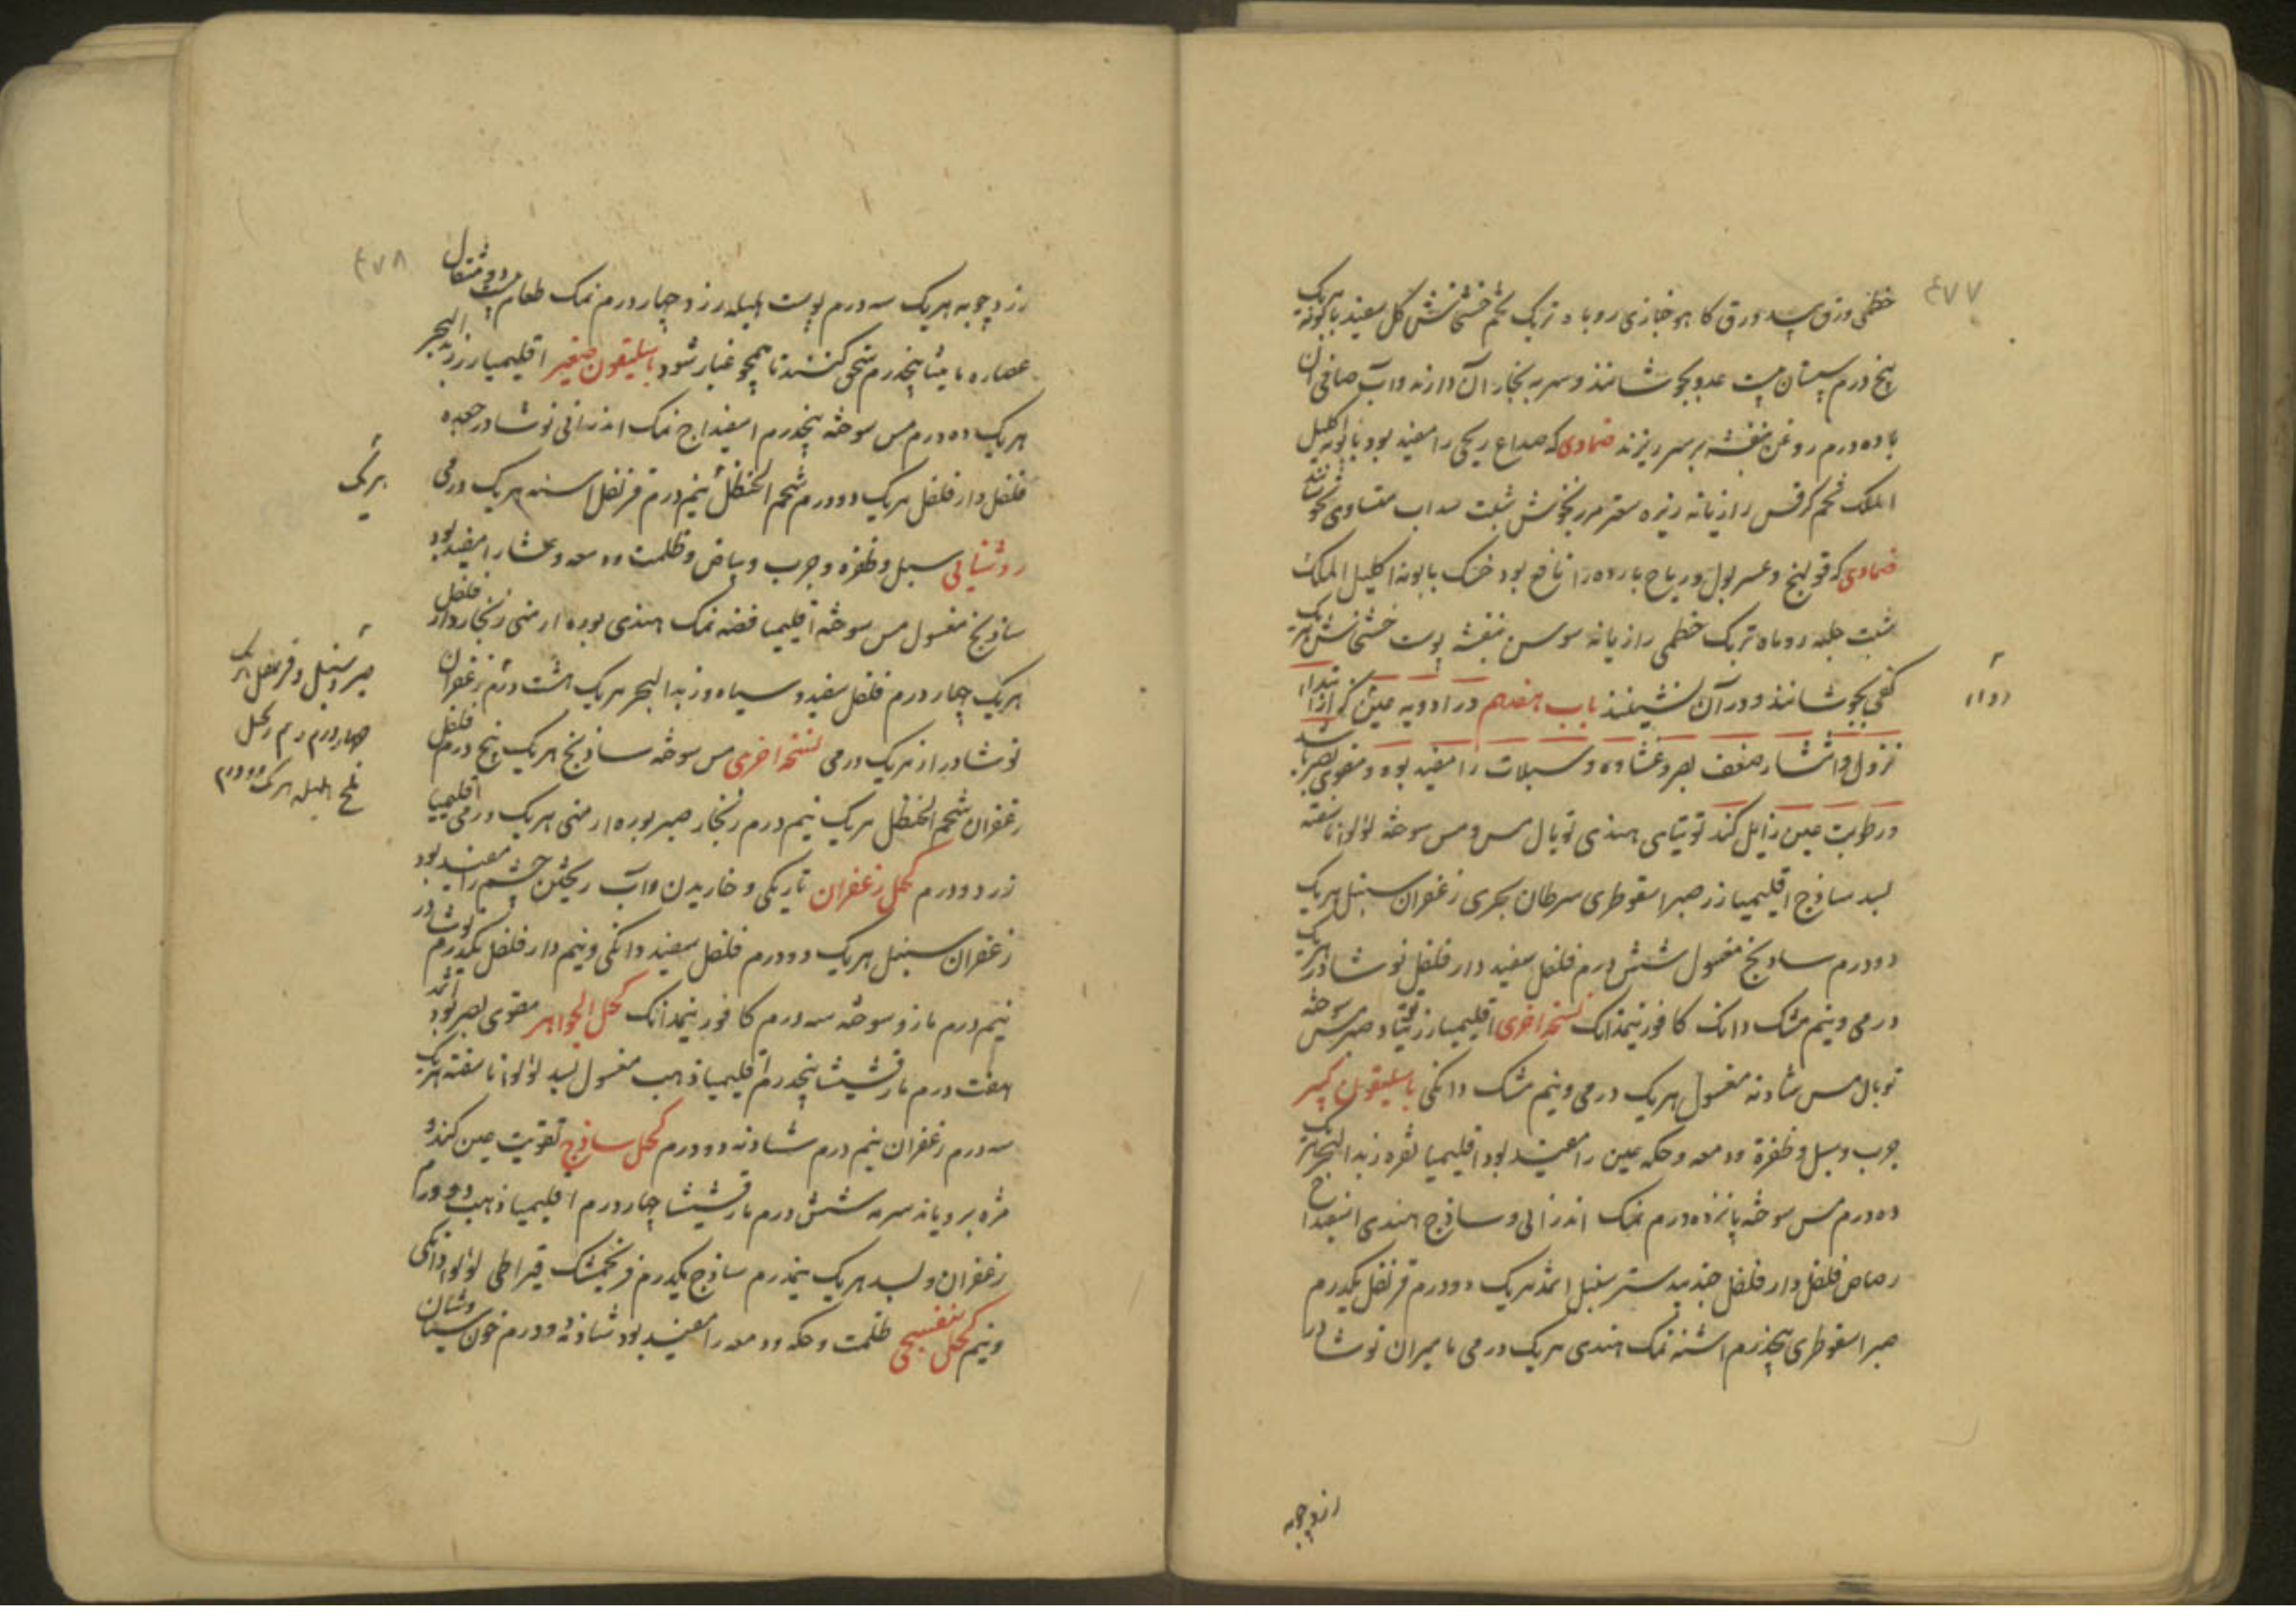 ٤٧٧
خطمی ورق بید ورق کاهو خبازی روباه تربک تخم خشخاش گل سفید بابونه هریک
پنج درم سپستان بیست عدد بجوشانند و سر به بخار آن دارند و آب صافی آن
با ده درم روغن بنفشه بر سر ریزند ضمادی که صداع ریحی را مفید بود بابونه اکلیل
الملک تخم کرفس رازیانه زیره سعتر مرزنجوش شبت سداب متساوی بجوشانند
ضمادی که قولنج و عسر بول و ریاح بارده را نافع بود خسک بابونه اکلیل الملک
شبت حلبه روباه تربک خطمی رازیانه سوسن بنفشه پوست خشخاش هریک
کفی بجوشانند و در آن نشینند باب هفدهم در ادویه عین که ابتداء
نزول و انتشار ضعف بصر و غشاوه و سبلات را مفید بود و مقوی بصر باشد
و رطوبت عین زایل کند توتیای هندی توبال مس و مس سوخته لؤلؤ ناسفته
بسد ساذج اقلیمیا زر صبر اسقوطری سرطان بحری زعفران سنبل هریک
دو درم سادنج مغسول شش درم فلفل سفید دار فلفل نوشادر هریک
درمی و نیم مشک دانک کافور نیمدانک نسخه اخری اقلیمیا زر توتیا و صبر مس سوخته
توبال مس شادنه مغسول هریک درمی و نیم مشک دانکی باسلیقون کبیر
جرب و سبل و ظفره و دمعه و حکه عین را مفید بود اقلیمیا نقره زبد البحر هریک
ده درم مس سوخته پانزده درم نمک اندرانی و ساذج هندی اسفیداج
رصاص فلفل دار فلفل جندبیدستر سنبل اثمد هریک دو درم قرنفل یکدرم
صبر اسقوطری پنجدرم اشنه نمک هندی هریک درمی مامیران نوشادر
زردچوبه
٤٧٨
زردچوبه هریک سه درم پوست هلیله زرد چهار درم نمک طعام بیست و دو مثقال
عصاره مامیثا پنجدرم سحق کنند تا همچو غبار شود باسلیقون صغیر اقلیمیا زر زبد البحر
هریک ده درم مس سوخته پنجدرم اسفیداج نمک اندرانی نوشادر جعده
فلفل دار فلفل هریک دو درم شحم الحنظل نیم درم قرنفل اشنه هریک درمی
روشنایی سبل و ظفره و جرب و بیاض و ظلمت و دمعه و عشا را مفید بود
ساذنج مغسول مس سوخته اقلیمیا فضه نمک هندی بوره ارمنی زنجار دار فلفل
هریک چهار درم فلفل سفید و سیاه و زبد البحر هریک هشت درم زعفران
نوشادر از هریک درمی نسخه اخری مس سوخته ساذنج هریک پنج درم فلفل
زعفران شحم الحنظل هریک نیم درم زنجار صبر بوره ارمنی هریک درمی اقلیمیا
زر دو درم کحل زعفران تاریکی و خاریدن و آب ریختن چشم را مفید بود
زعفران سنبل هریک دو درم فلفل سفید دانکی و نیم دار فلفل یکدرم نوشادر
نیم درم مازو سوخته سه درم کافور نیمدانک کحل الجواهر مقوی بصر بود اثمد
هفت درم مارقشیشا پنجدرم اقلیمیا ذهب مغسول بسد لؤلؤ ناسفته هریک
سه درم زعفران نیم درم شادنه دو درم کحل ساذج تقویت عین کند و
مژه برویاند سرمه شش درم مارقشیشا چهار درم اقلیمیا ذهب دو درم
زعفران و بسد هریک نیمدرم ساذج یکدرم فرنجمشک قیراطی لؤلؤ دانکی
و نیم کحل بنفسجی ظلمت و حکه و دمعه را مفید بود شاذنه دو درم خون سیاوشان
صبر و سنبل و قرنفل هریک
چهار درم
هلیله هریک دو درم